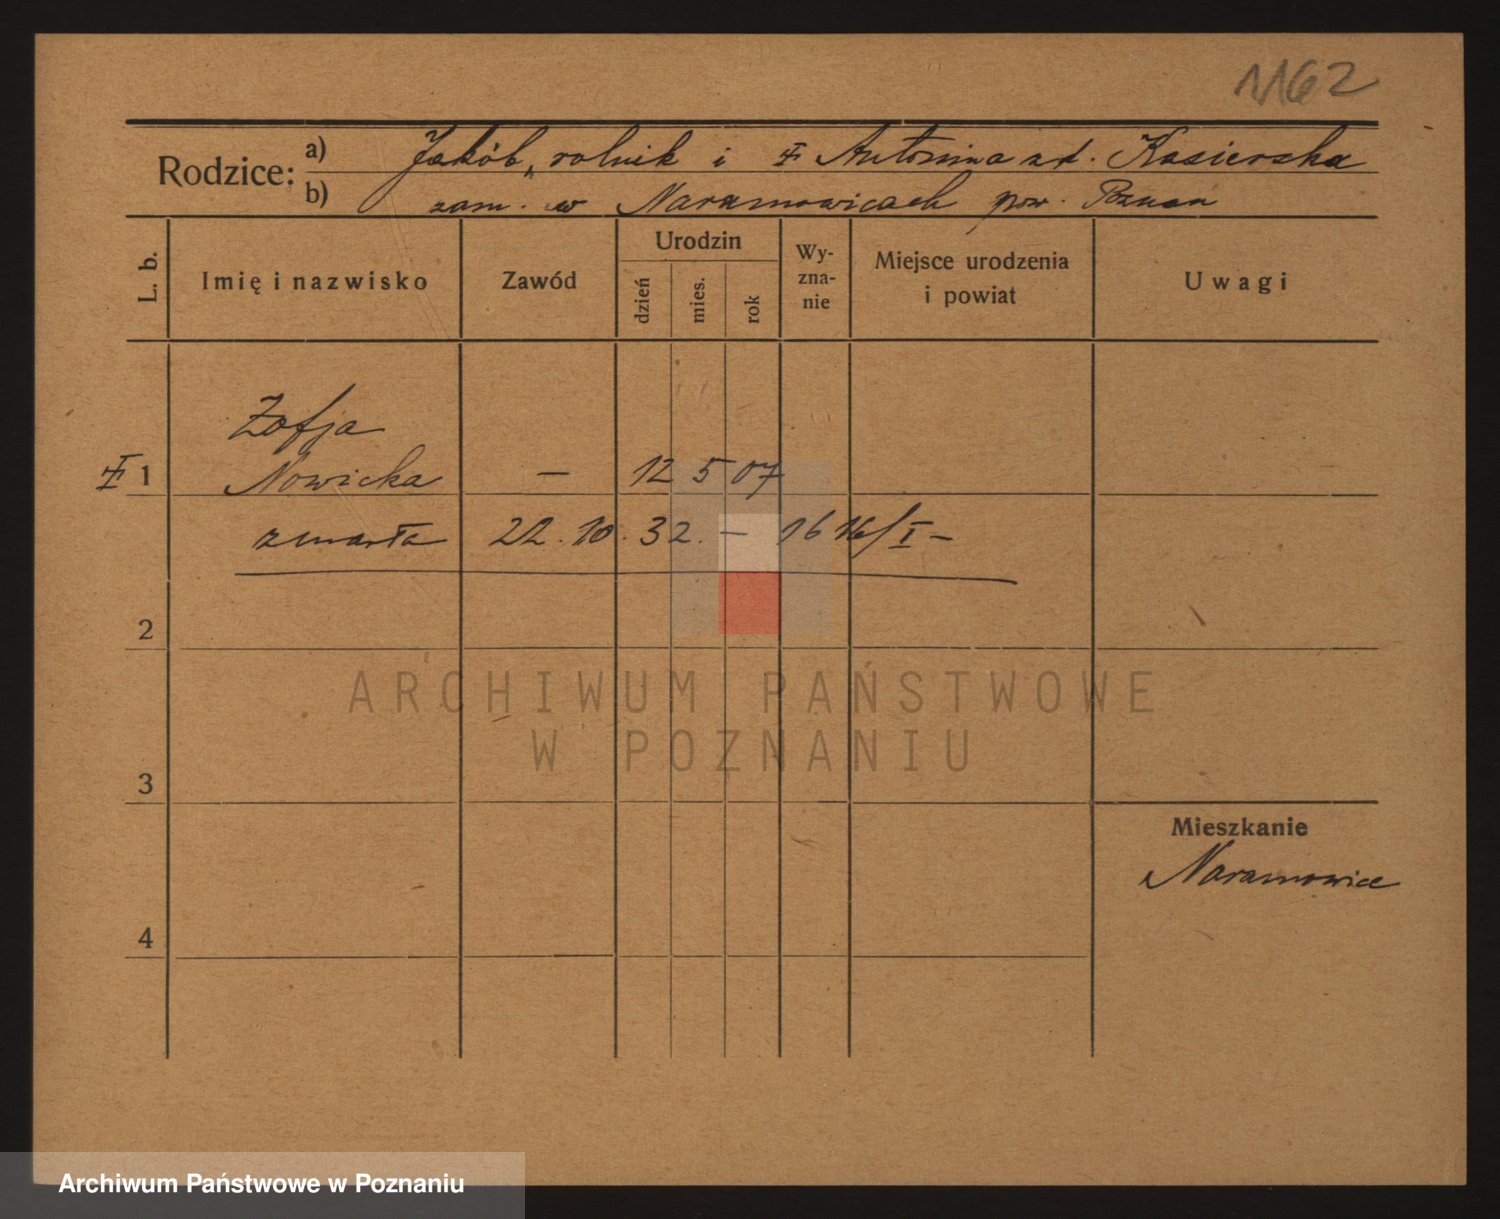 1162
Rodzice: a) Jakób, rolnik i Antonina zd. Kasierska
b) zam. w Naramowicach pow. Poznań
L. b.
Imię i nazwisko
Zawód
Urodzin
dzień
mies.
rok
Wy-
zna-
nie
Miejsce urodzenia
i powiat
Uwagi
Zofja
1 Nowicka — 12 5 07
zmarła 22. 10. 32. — 1616/I —
2
3
4
Mieszkanie
Naramowice
ARCHIWUM PAŃSTWOWE
W POZNANIU
Archiwum Państwowe w Poznaniu